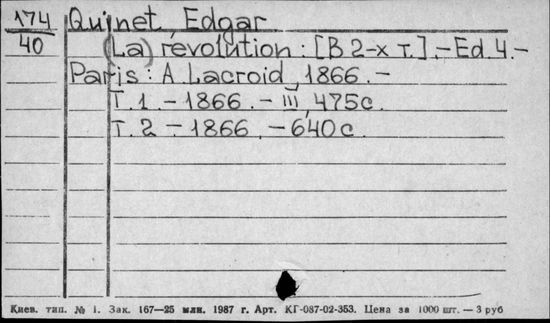 174 Quinet, Edgar
40 (La) révolution : [В 2-х т.]. – Ed. 4. –
Paris : A Lacroid, 1866. –
Т. 1 – 1866. – III, 475с.
Т. 2 – 1866. – 640с.
Киев. тип. № 1. Зак. 167—25 млн. 1987 г. Арт. КГ-087-02-353. Цена за 1000 шт. — 3 руб